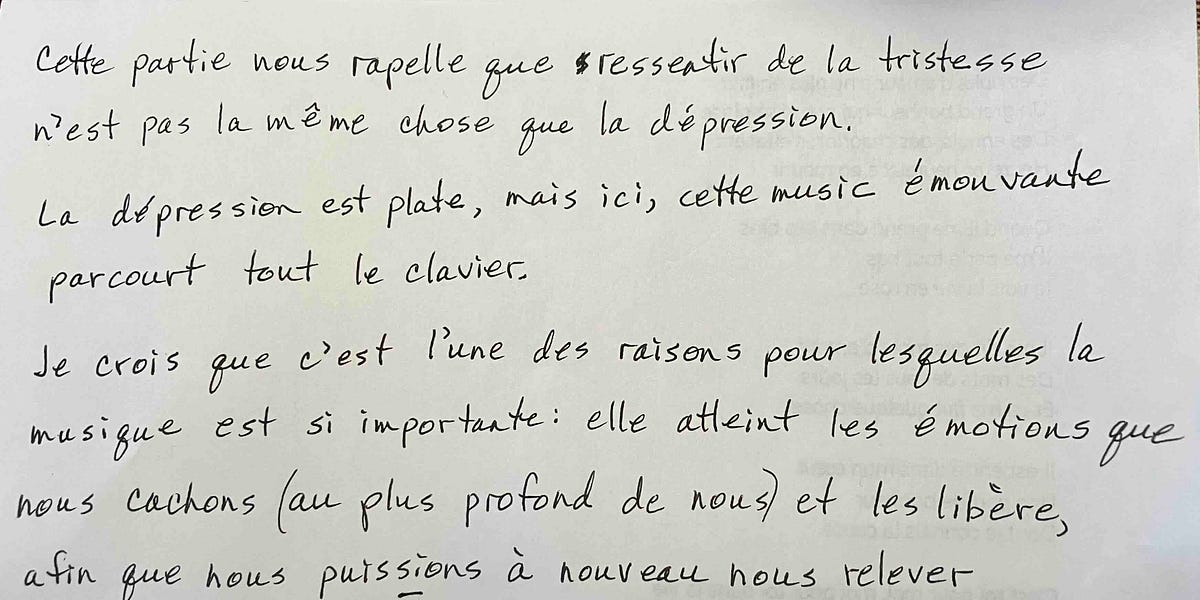 Cette partie nous rapelle que ressentir de la tristesse
n'est pas la même chose que la dépression.
La dépression est plate, mais ici, cette music émouvante
parcourt tout le clavier.
Je crois que c'est l'une des raisons pour lesquelles la
musique est si importante: elle atteint les émotions que
nous cachons (au plus profond de nous) et les libère,
afin que nous puissions à nouveau nous relever